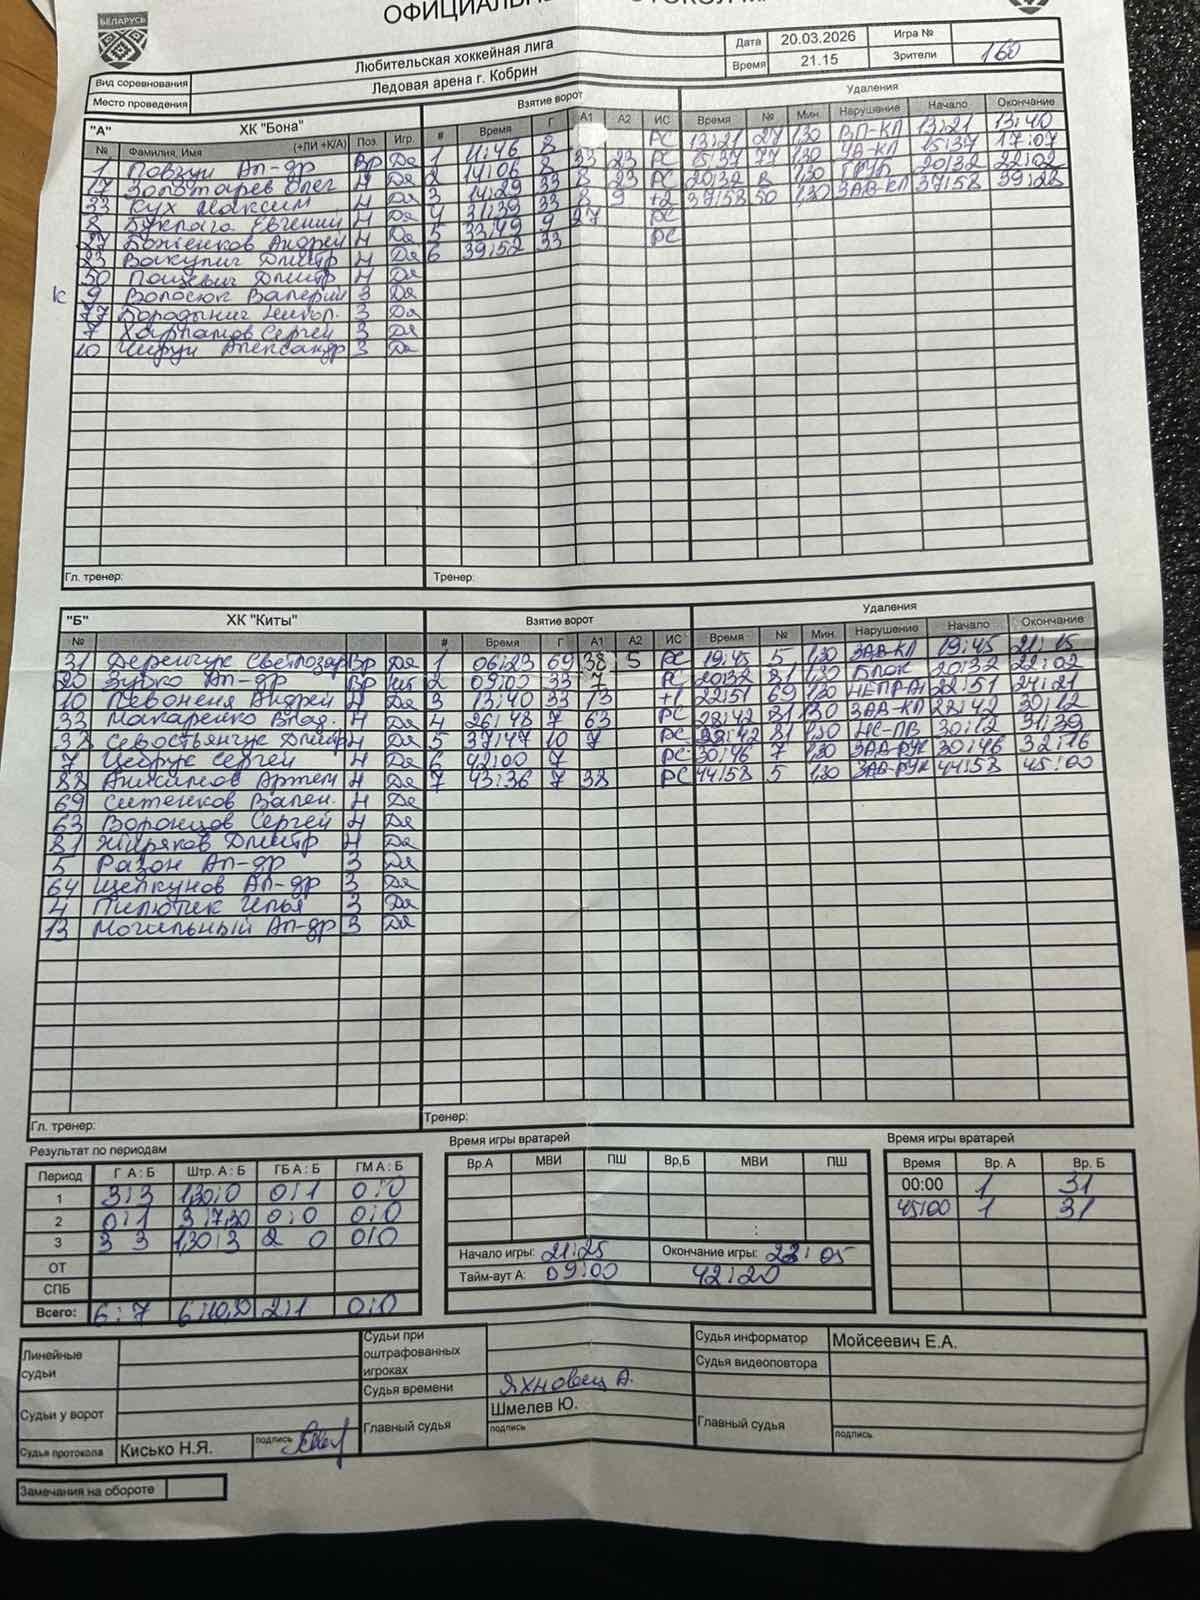 БЕЛАРУСЬ
Вид соревнования Любительская хоккейная лига Дата 20.03.2026 Игра №
Место проведения Ледовая арена г. Кобрин Время 21.15 Зрители 160
"А" ХК "Бона" Взятие ворот Удаления
№ Фамилия, Имя (+ЛИ +К/А) Поз. Игр. # Время Г А1 А2 ИС Время № Мин. Нарушение Начало Окончание
1 Повзун Ал-др Вр Да 1 11:46 8 РС 13:21 27 1,30 13:21 13:40
17 Золотарев Олег Н Да 2 14:06 8 33 23 РС 15:37 77 1,30 15:37 17:07
33 Кух Максим Н Да 3 14:29 33 8 23 РС 20:32 8 1,30 20:32 22:02
8 Евгений Н Да 4 31:39 33 8 9 +2 37:58 50 1,30 ЗАВ-КЛ 37:58 39:28
27 Боженков Андрей Н Да 5 33:49 9 27 РС
23 Вакулич Дмитр Н Да 6 39:52 33 РС
50 Пашевич Дмитр Н Да
К 9 Волосюк Валерий З Да
77 Бородынич З Да
7 Харламов Сергей З Да
10 Чирун Александр З Да
Гл. тренер: Тренер:
"Б" ХК "Киты" Взятие ворот Удаления
№ # Время Г А1 А2 ИС Время № Мин. Нарушение Начало Окончание
31 Деренчук Светлозар Вр Да 1 06:23 69 38 5 РС 19:45 5 1,30 ЗАВ-КЛ 19:45 21:15
20 Зурко Ал-др Вр Нт 2 09:00 33 7 РС 20:32 81 1,30 БЛОК 20:32 22:02
10 Левоненя Андрей Н Да 3 13:40 33 13 +1 22:51 69 1,30 22:51 24:21
33 Макаренко Влад. Н Да 4 26:48 7 63 РС 28:42 81 1,30 ЗАВ-КЛ 28:42 30:12
38 Севостьянчук Дмитр Н Да 5 37:47 10 7 РС 28:42 81 1,30 НС-ПВ 30:12 31:39
7 Цебрук Сергей Н Да 6 42:00 7 РС 30:46 7 1,30 ЗАД-РУК 30:46 32:16
88 Анисимов Артем Н Да 7 43:36 7 38 РС 44:58 5 1,30 ЗАД-РУК 44:58 45:00
69 Ситенков Вален. Н Да
63 Воронцов Сергей Н Да
81 Жиряков Дмитр Н Да
5 Разон Ал-др З Да
64 Щелкунов Ал-др З Да
4 Пилютик Илья З Да
13 Могильный Ал-др З Да
Гл. тренер: Тренер:
Результат по периодам Время игры вратарей Время игры вратарей
Период Г А : Б Штр. А : Б ГБ А : Б ГМ А : Б Вр.А МВИ ПШ Вр,Б МВИ ПШ Время Вр. А Вр. Б
1 3:3 1,30:0 0:1 0:0 00:00 1 31
2 0:1 3:7,30 0:0 0:0 45:00 1 31
3 3 3 1,30:3 2 0 0:0
ОТ Начало игры: 21:25 Окончание игры: 23:05
СПБ Тайм-аут А: 09:00 42:20
Всего: 6:7 6:10,30 2:1 0:0
Линейные судьи Судьи при оштрафованных игроках Судья информатор Мойсеевич Е.А.
Судья видеоповтора
Судья времени Яхновец А.
Судьи у ворот Главный судья Шмелев Ю. подпись Главный судья подпись
Судья протокола Кисько Н.Я. подпись
Замечания на обороте